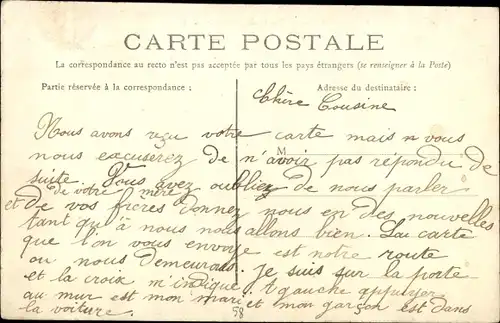 CARTE POSTALE
La correspondance au recto n'est pas acceptée par tous les pays étrangers (se renseigner à la Poste)
Partie réservée à la correspondance :
Adresse du destinataire :
Chère Cousine
Nous avons reçu votre carte mais n vous
M
nous excuserez de n'avoir pas répondu de
suite. Vous avez oubliez de nous parler
de votre mère
et de vos frères Donnez nous en des nouvelles
tant qu'à nous nous allons bien. La carte
que l'on vous envoye est notre route
ou nous demeurons. je suis sur la porte
et la croix m'indique. A gauche appuyer
au mur est mon mari et mon garçon est dans
la voiture.
58